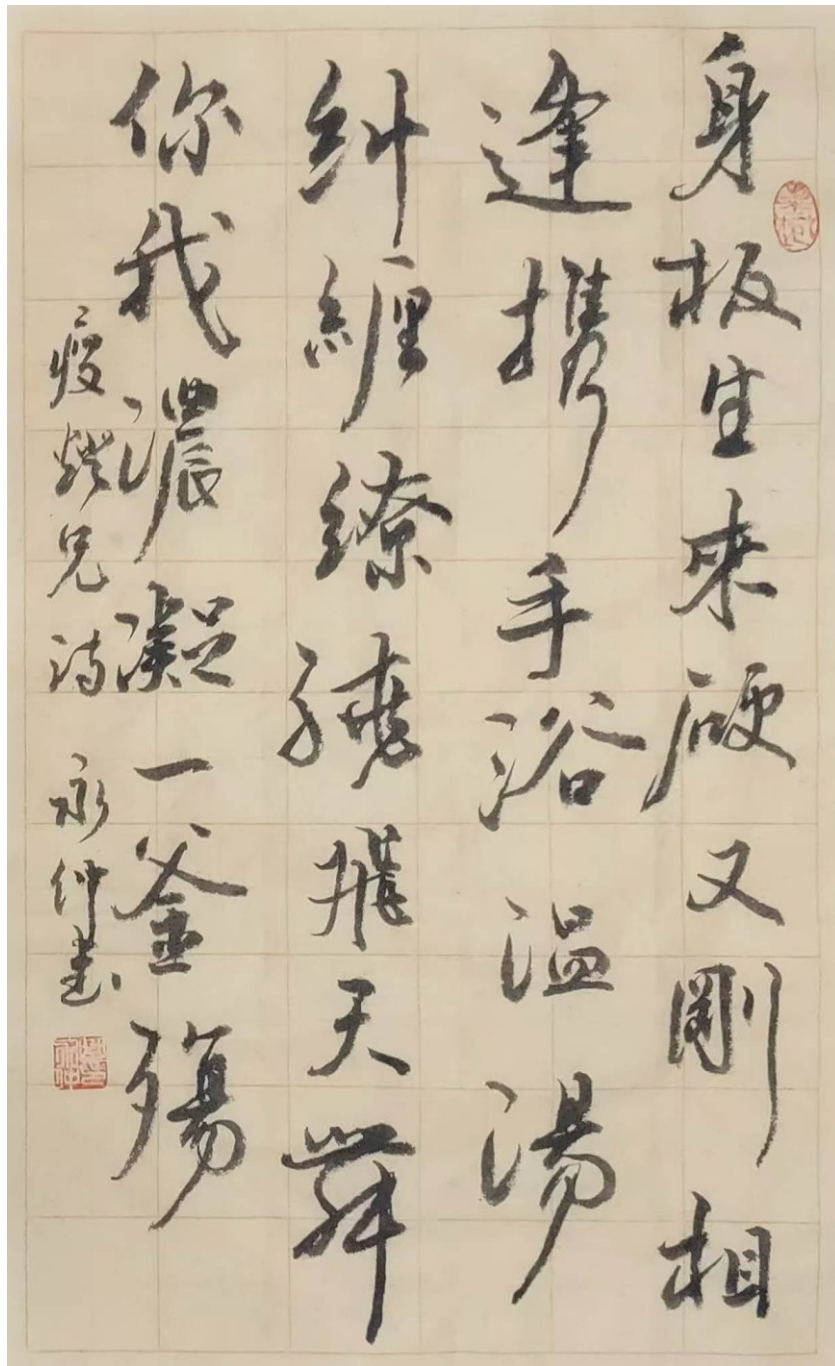 身板生来硬又剛相
逢携手浴温湯
糾纏繚繞飛天舞
你我濃凝一釜殤
瘦燈兄詩 永仲書